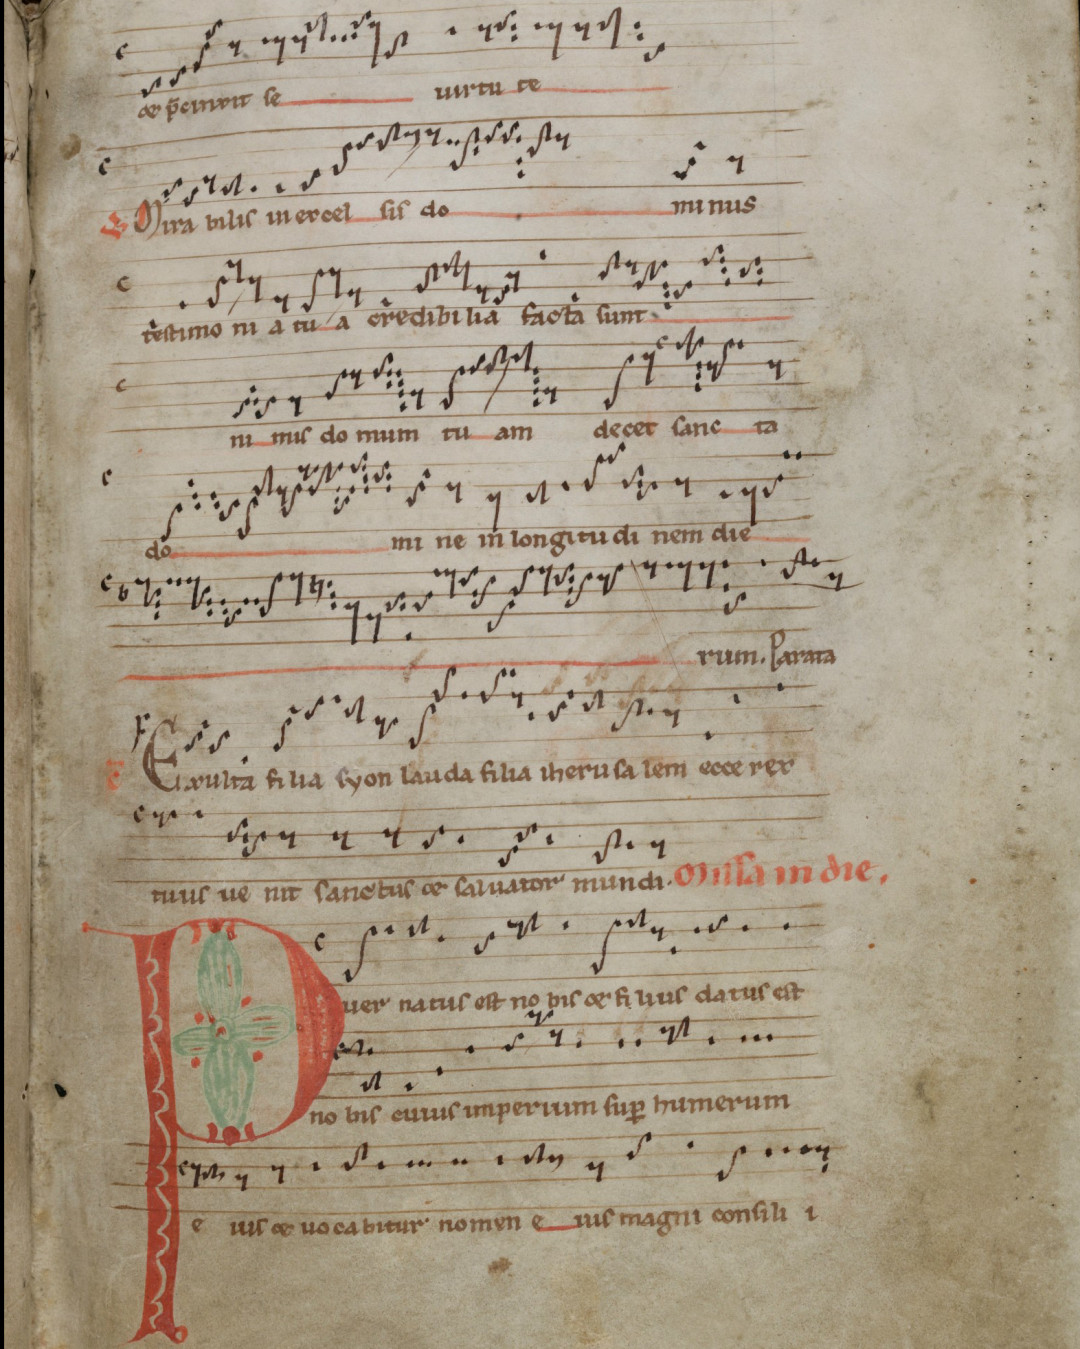 et p̄cinxit se uirtu te
V Mira bilis in excel sis do minus
testimo ni a tu a credibilia facta sunt
ni nus domum tu am decet sanc ta
do mi ne in longitudi nem die
rum. Parata
Exulta filia syon lauda filia iherusalem ecce rex
tuus ue nit sanctus et saluator mundi. Missa in die.
Puer natus est no bis et filius datus est
no bis cuius imperium sup̄ humerum
e ius et uocabitur nomen e ius magni consili i